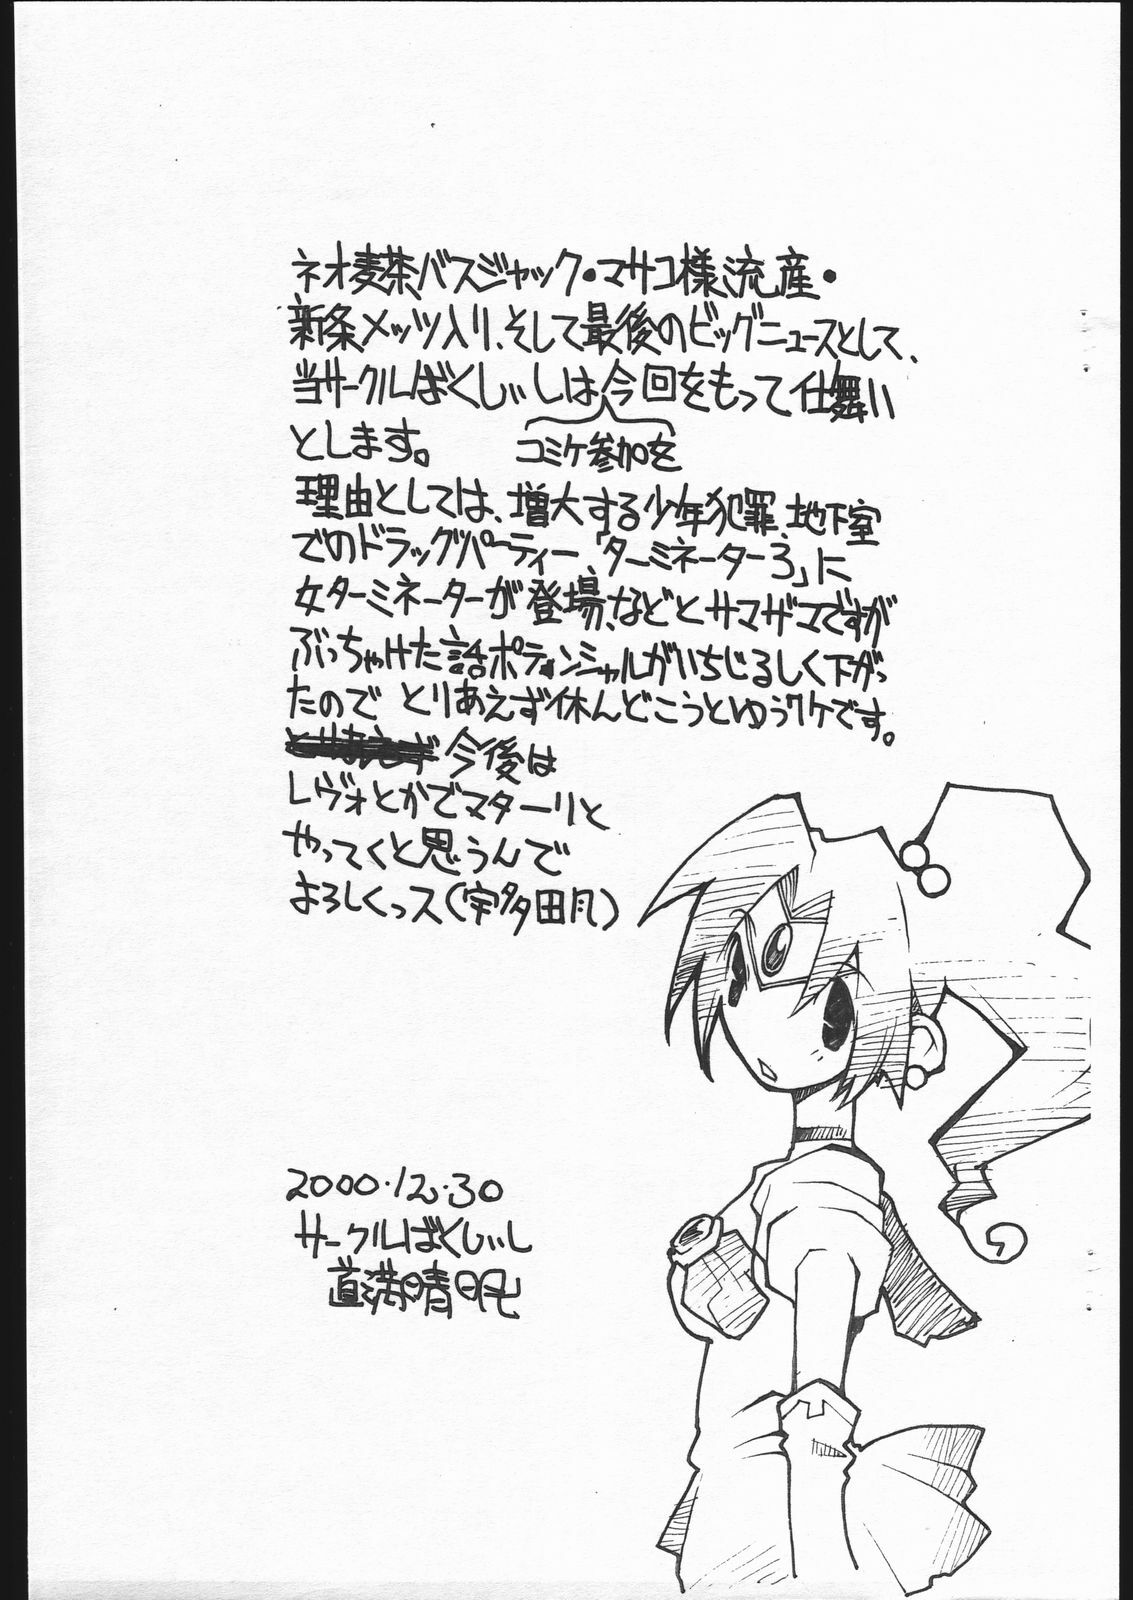 ネオ麦茶バスジャック・マサコ様流産・
新条メッツ入り、そして最後のビッグニュースとして、
当サークルばくしぃしは今回をもって仕舞い
とします。
コミケ参加を
理由としては、増大する少年犯罪、地下室
でのドラッグパーティー、「ターミネーター3」に
女ターミネーターが登場、などとサマザマですが
ぶっちゃけた話ポテンシャルがいちじるしく下がっ
たので とりあえず休んどこうとゆうワケです。
今後は
レヴォとかでマターリと
やってくと思うんで
よろしくっス(宇多田風)
2000.12.30
サークルばくしぃし
道満晴明